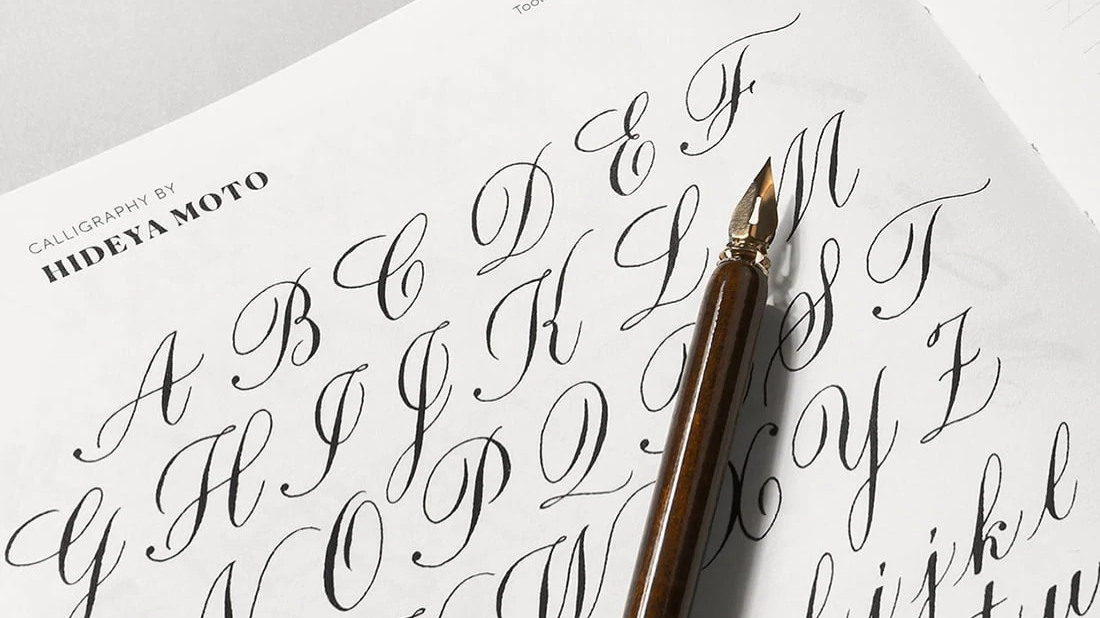 CALLIGRAPHY BY
HIDEYA MOTO
A B C D E F
G H I J K L M
N O P Q R S T
W X Y Z
h i j k l
t u